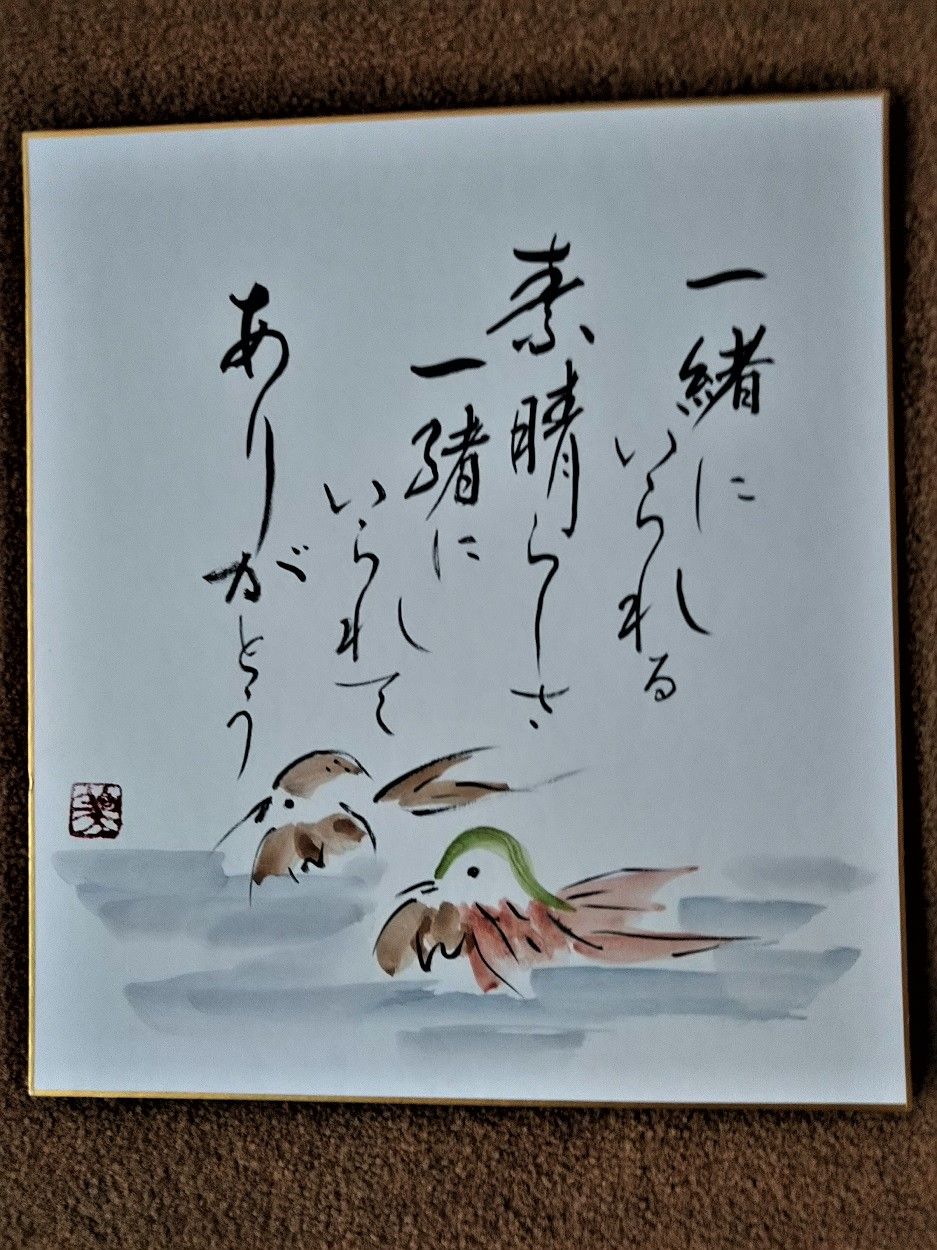 一緒に
いられる
素晴らしさ
一緒に
いられて
ありがとう